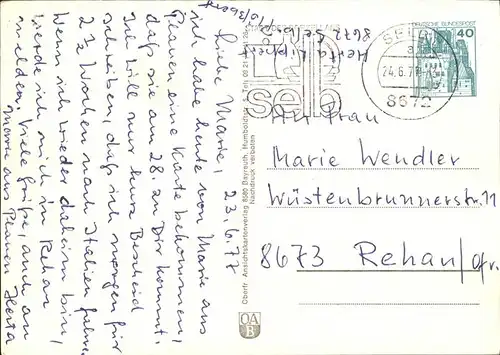 Herta Lippert
8672 Selb
Plößberg
DEUTSCHE BUNDESPOST
40
SELB
24.6.77
8672
selb
An Frau
Marie Wendler
Wüstenbrunnerstr. 11
8673 Rehau/Ofr.
23.6.77
Liebe Marie!
ich habe heute von Marie aus
Plauen eine Karte bekommen,
daß sie am 28. zu Dir kommt.
Ich will nur kurz Bescheid
schreiben, daß ich morgen für
2 ½ Wochen nach Italien fahre.
Wenn ich wieder daheim bin,
werde ich mich in Rehau
melden. Viele Grüße, auch an
Marie aus Plauen Herta
Oberfr. Ansichtskartenverlag 8580 Bayreuth, Humboldtstr.
Nachdruck verboten
OAB